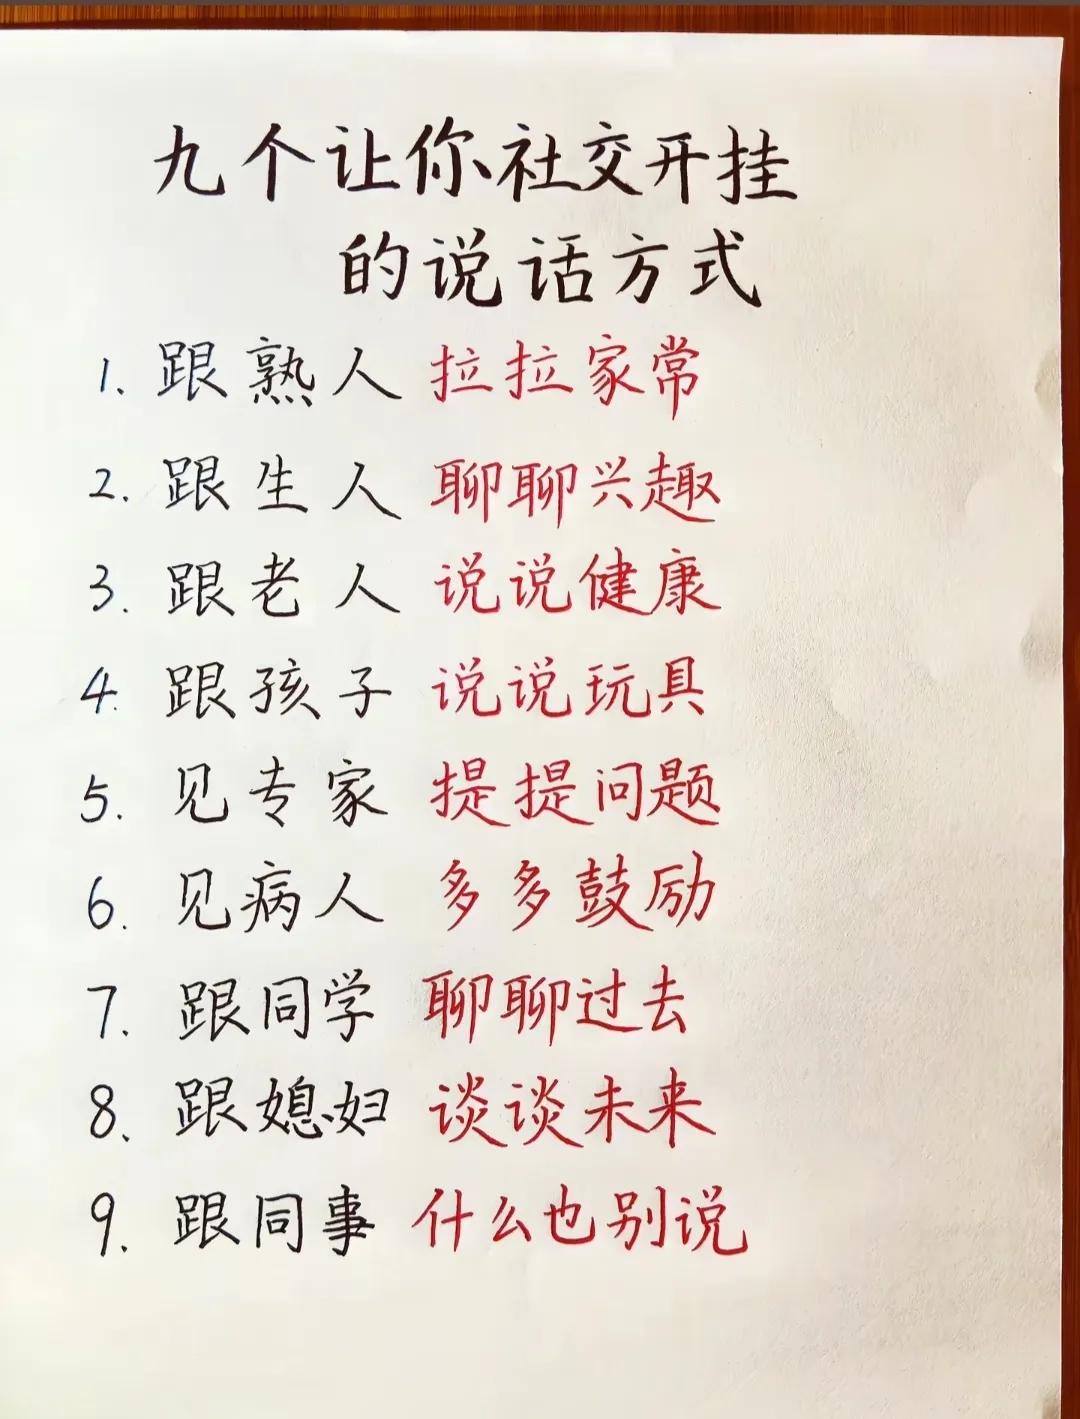 九个让你社交开挂
的说话方式
1、跟熟人 拉拉家常
2. 跟生人 聊聊兴趣
3. 跟老人 说说健康
4. 跟孩子 说说玩具
5. 见专家 提提问题
6. 见病人 多多鼓励
7. 跟同学 聊聊过去
8、跟媳妇 谈谈未来
9. 跟同事 什么也别说